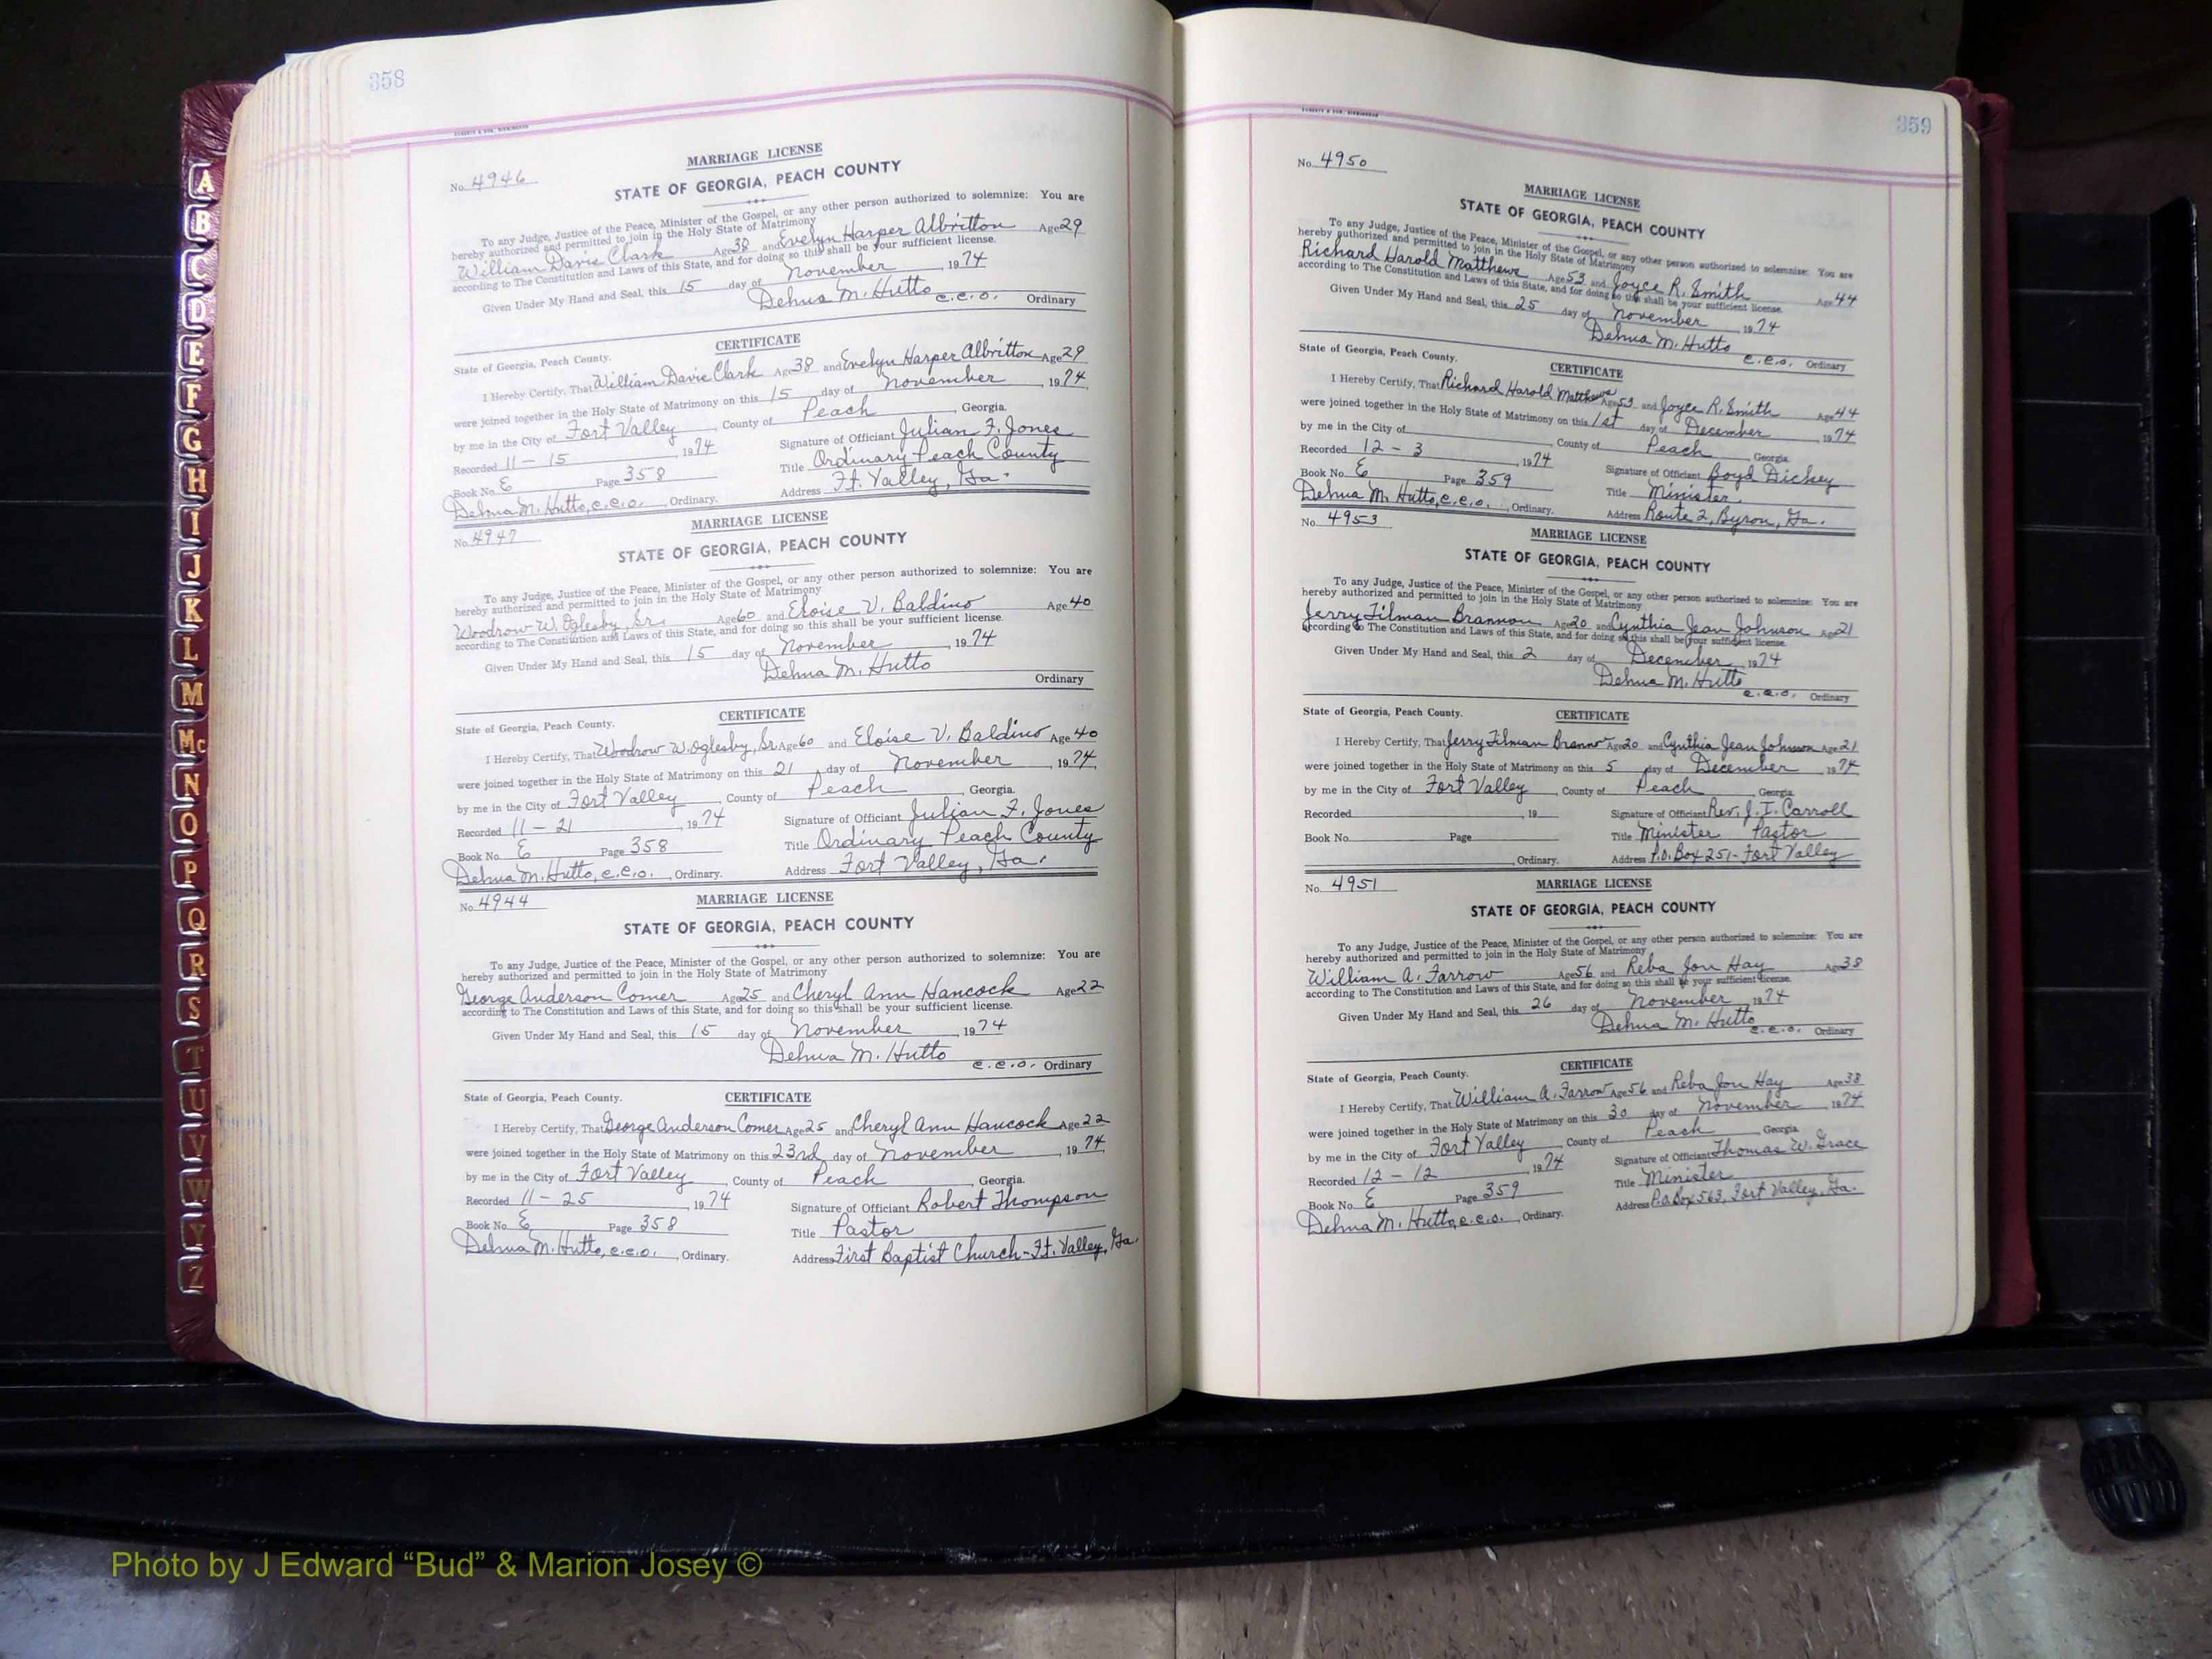 358
ROBERTS & SON, BIRMINGHAM
No. 4946
MARRIAGE LICENSE
STATE OF GEORGIA, PEACH COUNTY
To any Judge, Justice of the Peace, Minister of the Gospel, or any other person authorized to solemnize: You are
hereby authorized and permitted to join in the Holy State of Matrimony
William Davis Clark Age 38 and Evelyn Harper Albritton Age 29
according to The Constitution and Laws of this State, and for doing so this shall be your sufficient license.
Given Under My Hand and Seal, this 15 day of November, 1974
Delma M. Hutto c.c.o. Ordinary
CERTIFICATE
State of Georgia, Peach County.
I Hereby Certify, That William Davis Clark Age 38 and Evelyn Harper Albritton Age 29
were joined together in the Holy State of Matrimony on this 15 day of November, 1974,
by me in the City of Fort Valley, County of Peach, Georgia.
Recorded 11-15, 1974 Signature of Officiant Julian F. Jones
Book No. E Page 358 Title Ordinary Peach County
Delma M. Hutto, c.c.o., Ordinary. Address Ft. Valley, Ga.
No. 4947
MARRIAGE LICENSE
STATE OF GEORGIA, PEACH COUNTY
To any Judge, Justice of the Peace, Minister of the Gospel, or any other person authorized to solemnize: You are
hereby authorized and permitted to join in the Holy State of Matrimony
Woodrow W. Oglesby, Sr. Age 60 and Eloise V. Baldino Age 40
according to The Constitution and Laws of this State, and for doing so this shall be your sufficient license.
Given Under My Hand and Seal, this 15 day of November, 1974
Delma M. Hutto
Ordinary
CERTIFICATE
State of Georgia, Peach County.
I Hereby Certify, That Woodrow W. Oglesby, Sr. Age 60 and Eloise V. Baldino Age 40
were joined together in the Holy State of Matrimony on this 21 day of November, 1974,
by me in the City of Fort Valley, County of Peach, Georgia.
Recorded 11-21, 1974 Signature of Officiant Julian F. Jones
Book No. E Page 358 Title Ordinary Peach County
Delma M. Hutto, c.c.o., Ordinary. Address Fort Valley, Ga.
No. 4944
MARRIAGE LICENSE
STATE OF GEORGIA, PEACH COUNTY
To any Judge, Justice of the Peace, Minister of the Gospel, or any other person authorized to solemnize: You are
hereby authorized and permitted to join in the Holy State of Matrimony
George Anderson Comer Age 25 and Cheryl Ann Hancock Age 22
according to The Constitution and Laws of this State, and for doing so this shall be your sufficient license.
Given Under My Hand and Seal, this 15 day of November, 1974
Delma M. Hutto
c.c.o. Ordinary
CERTIFICATE
State of Georgia, Peach County.
I Hereby Certify, That George Anderson Comer Age 25 and Cheryl Ann Hancock Age 22
were joined together in the Holy State of Matrimony on this 23rd day of November, 1974,
by me in the City of Fort Valley, County of Peach, Georgia.
Recorded 11-25, 1974 Signature of Officiant Robert Thompson
Book No. E Page 358 Title Pastor
Delma M. Hutto, c.c.o., Ordinary. Address First Baptist Church-Ft. Valley, Ga.
359
ROBERTS & SON, BIRMINGHAM
No. 4950
MARRIAGE LICENSE
STATE OF GEORGIA, PEACH COUNTY
To any Judge, Justice of the Peace, Minister of the Gospel, or any other person authorized to solemnize: You are
hereby authorized and permitted to join in the Holy State of Matrimony
Richard Harold Matthews Age 53 and Joyce R. Smith Age 44
according to The Constitution and Laws of this State, and for doing so this shall be your sufficient license.
Given Under My Hand and Seal, this 25 day of November, 1974
Delma M. Hutto
c.c.o. Ordinary
CERTIFICATE
State of Georgia, Peach County.
I Hereby Certify, That Richard Harold Matthews Age 53 and Joyce R. Smith Age 44
were joined together in the Holy State of Matrimony on this 1st day of December, 1974
by me in the City of , County of Peach, Georgia.
Recorded 12-3, 1974 Signature of Officiant Boyd Dickey
Book No. E Page 359 Title Minister
Delma M. Hutto, c.c.o., Ordinary. Address Route 2, Byron, Ga.
No. 4953
MARRIAGE LICENSE
STATE OF GEORGIA, PEACH COUNTY
To any Judge, Justice of the Peace, Minister of the Gospel, or any other person authorized to solemnize: You are
hereby authorized and permitted to join in the Holy State of Matrimony
Jerry Tilman Brannon Age 20 and Cynthia Jean Johnson Age 21
according to The Constitution and Laws of this State, and for doing so this shall be your sufficient license.
Given Under My Hand and Seal, this 2 day of December, 1974
Delma M. Hutto
c.c.o. Ordinary
CERTIFICATE
State of Georgia, Peach County.
I Hereby Certify, That Jerry Tilman Brannon Age 20 and Cynthia Jean Johnson Age 21
were joined together in the Holy State of Matrimony on this 5 day of December, 1974
by me in the City of Fort Valley, County of Peach, Georgia
Recorded , 19 Signature of Officiant Rev. J. I. Carroll
Book No. Page Title Minister Pastor
, Ordinary. Address P.O. Box 251-Fort Valley
No. 4951
MARRIAGE LICENSE
STATE OF GEORGIA, PEACH COUNTY
To any Judge, Justice of the Peace, Minister of the Gospel, or any other person authorized to solemnize: You are
hereby authorized and permitted to join in the Holy State of Matrimony
William A. Farrow Age 56 and Reba Jon Hay Age 38
according to The Constitution and Laws of this State, and for doing so this shall be your sufficient license.
Given Under My Hand and Seal, this 26 day of November, 1974
Delma M. Hutto
c.c.o. Ordinary
CERTIFICATE
State of Georgia, Peach County.
I Hereby Certify, That William A. Farrow Age 56 and Reba Jon Hay Age 38
were joined together in the Holy State of Matrimony on this 30 day of November, 1974
by me in the City of Fort Valley, County of Peach, Georgia
Recorded 12-12, 1974 Signature of Officiant Thomas W. Grace
Book No. E Page 359 Title Minister
Delma M. Hutto, c.c.o., Ordinary. Address P.O. Box 563, Fort Valley, Ga.
A
B
C
D
E
F
G
H
I
J
K
L
M
Mc
N
O
P
Q
R
S
T
U
V
W
Y
Z
Photo by J Edward “Bud” & Marion Josey ©